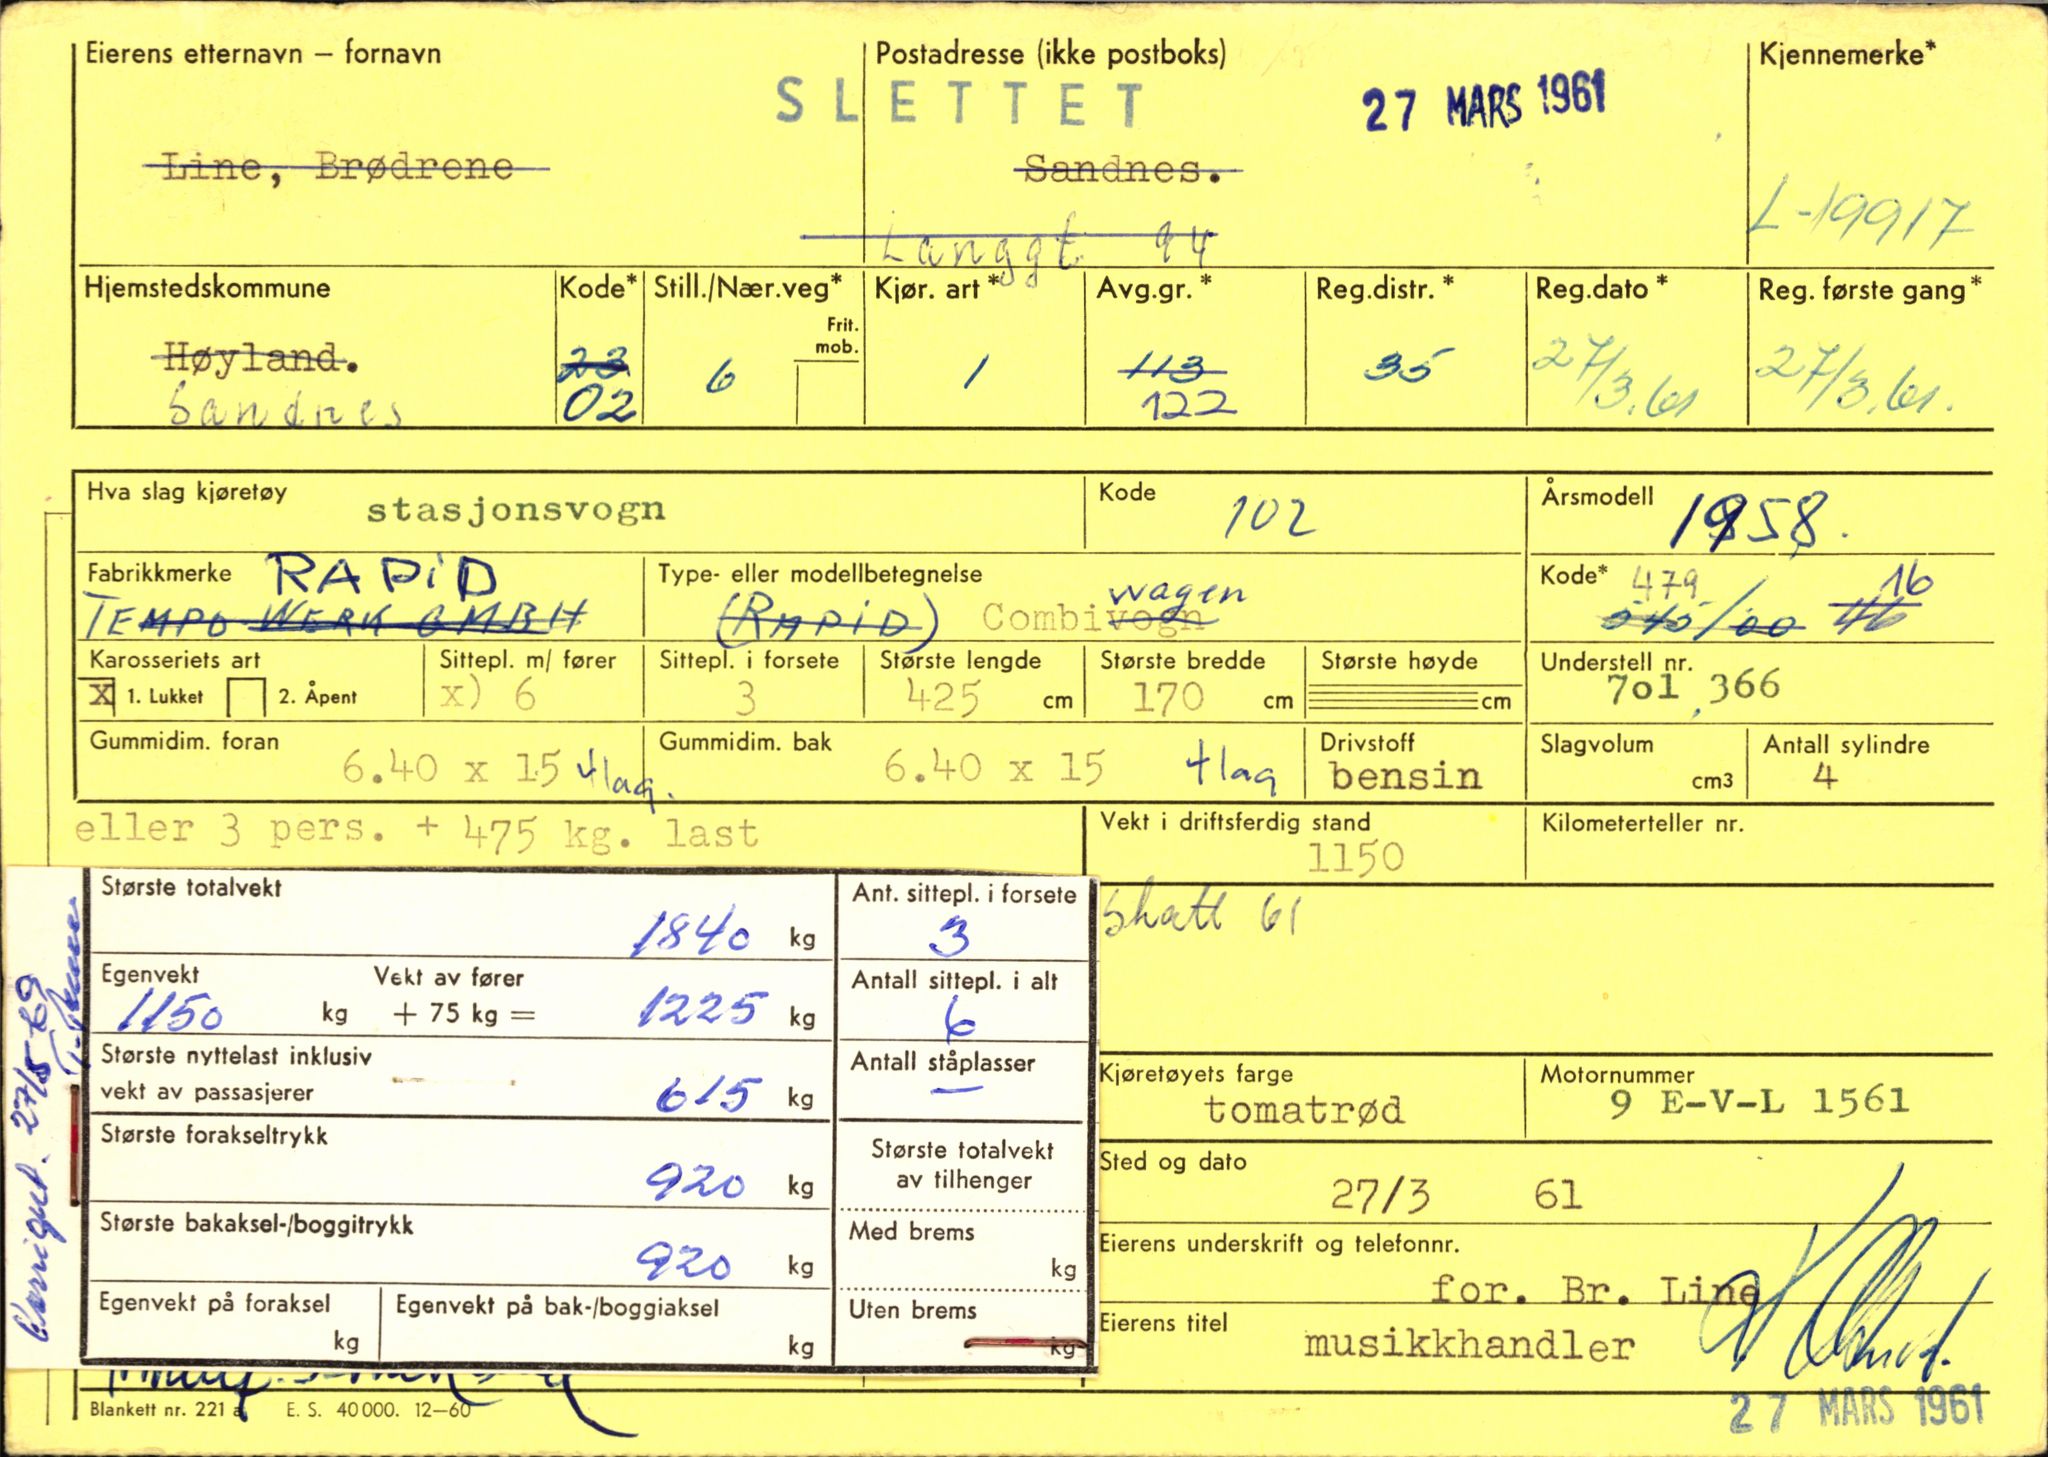 Eierens etternavn – fornavn
Postadresse (ikke postboks)
Kjennemerke*
SLETTET
27 MARS 1961
Line, Brødrene
Sandnes.
L-19917
Langgt 94
Hjemstedskommune
Kode*
Still./Nær.veg*
Frit. mob.
Kjør. art*
Avg.gr.*
Reg.distr.*
Reg.dato*
Reg. første gang*
Høyland.
23
6
1
113
35
27/3.61
27/3.61.
Sandnes
02
122
Hva slag kjøretøy
stasjonsvogn
Kode
102
Årsmodell
1958.
Fabrikkmerke
RAPiD
TEMPO WERK GMBH
Type- eller modellbetegnelse
wagen
(RAPiD) Combivogn
Kode*
479
16
/00
Karosseriets art
X 1. Lukket
2. Åpent
Sittepl. m/ fører
x) 6
Sittepl. i forsete
3
Største lengde
425 cm
Største bredde
170 cm
Største høyde
cm
Understell nr.
7o1 366
Gummidim. foran
6.40 x 15 4 lag.
Gummidim. bak
6.40 x 15 4 lag
Drivstoff
bensin
Slagvolum
cm3
Antall sylindre
4
eller 3 pers. + 475 kg. last
Vekt i driftsferdig stand
1150
Kilometerteller nr.
Største totalvekt
1840 kg
Ant. sittepl. i forsete
3
Skatt 61
Egenvekt
1150 kg
Vekt av fører
+ 75 kg = 1225 kg
Antall sittepl. i alt
6
Største nyttelast inklusiv
vekt av passasjerer
615 kg
Antall ståplasser
–
Kjøretøyets farge
tomatrød
Motornummer
9 E-V-L 1561
Største forakseltrykk
920 kg
Største totalvekt
av tilhenger
Sted og dato
27/3 61
Største bakaksel-/boggitrykk
920 kg
Med brems
kg
Eierens underskrift og telefonnr.
for. Br. Line
Egenvekt på foraksel
kg
Egenvekt på bak-/boggiaksel
kg
Uten brems
kg
Eierens titel
musikkhandler
Korrigert. 27/5-69
27 MARS 1961
Blankett nr. 221 a.
E. S. 40000. 12–60